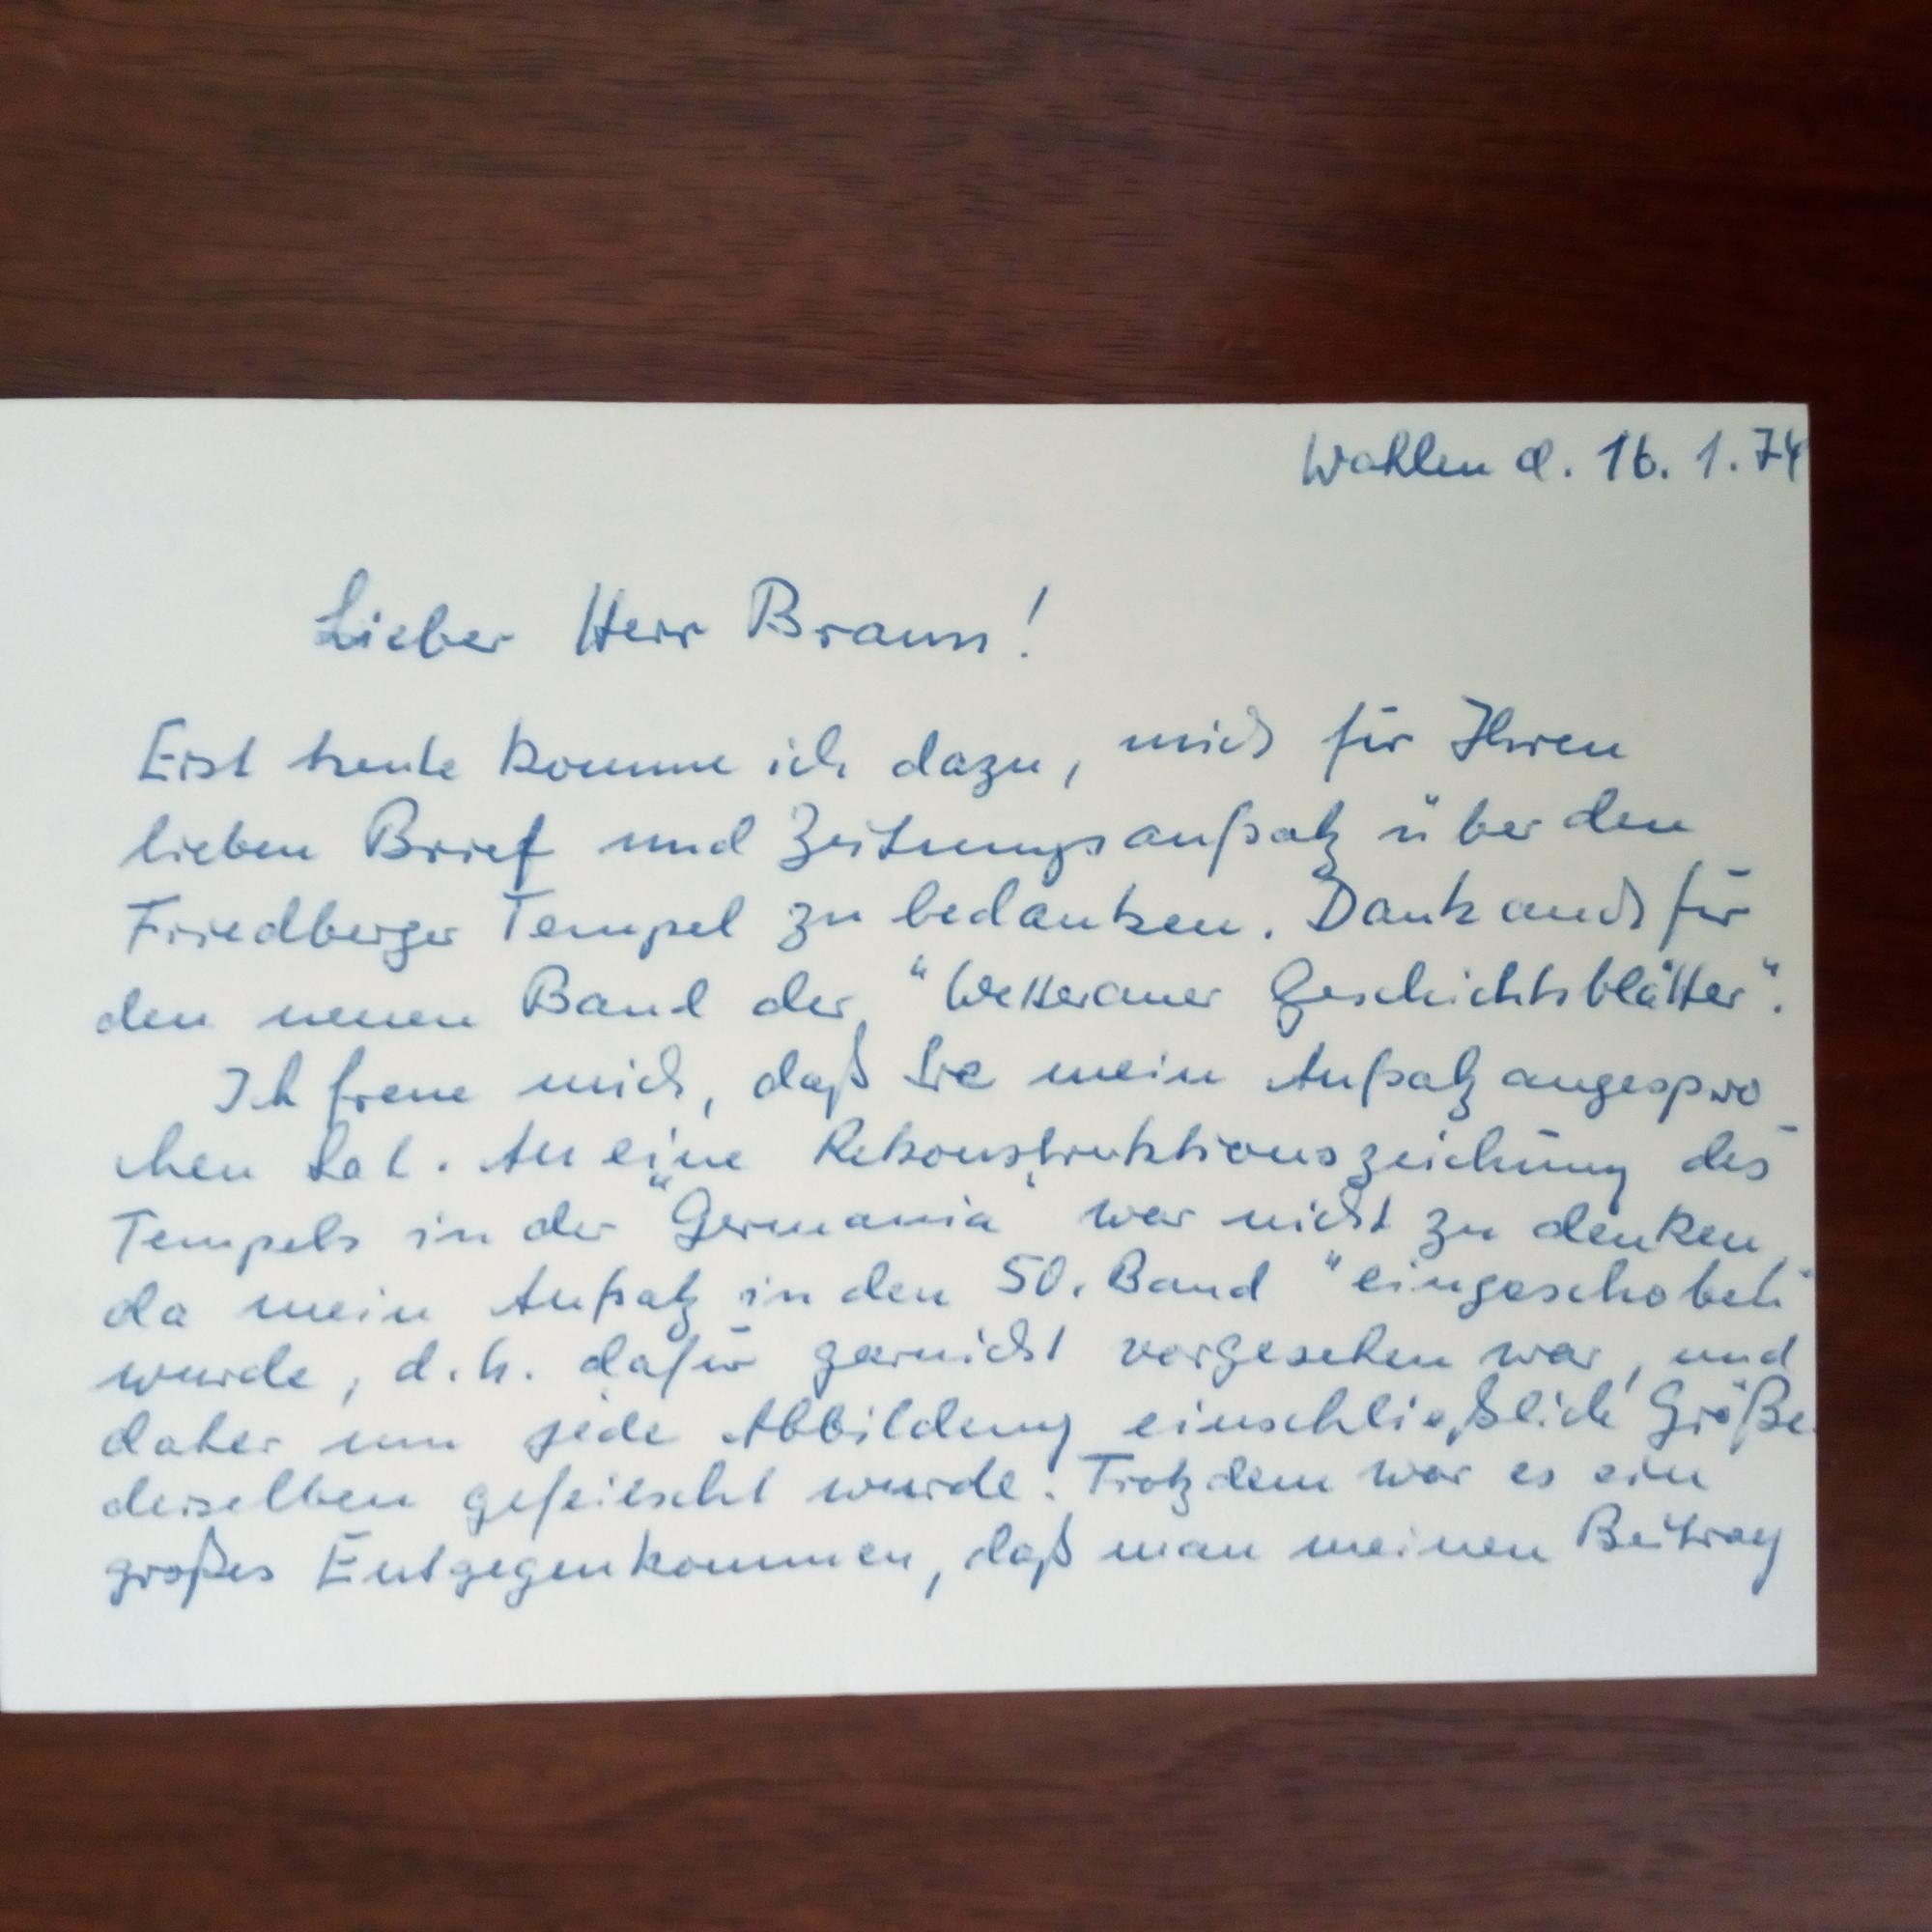 Wahlen d. 16. 1. 74
Lieber Herr Braun!
Erst heute komme ich dazu, mich für Ihren
lieben Brief und Zeitungsaufsatz über den
Friedberger Tempel zu bedanken. Dank auch für
den neuen Band der "Wetterauer Geschichtsblätter".
Ich freue mich, daß Sie mein Aufsatz angespro-
chen hat. An eine Rekonstruktionszeichnung des
Tempels in der "Germania" war nicht zu denken,
da mein Aufsatz in den 50. Band "eingeschoben"
wurde, d.h. dafür garnicht vorgesehen war, und
daher um jede Abbildung einschließlich Größe
derselben gefeilscht wurde. Trotzdem war es ein
großes Entgegenkommen, daß man meinen Beitrag